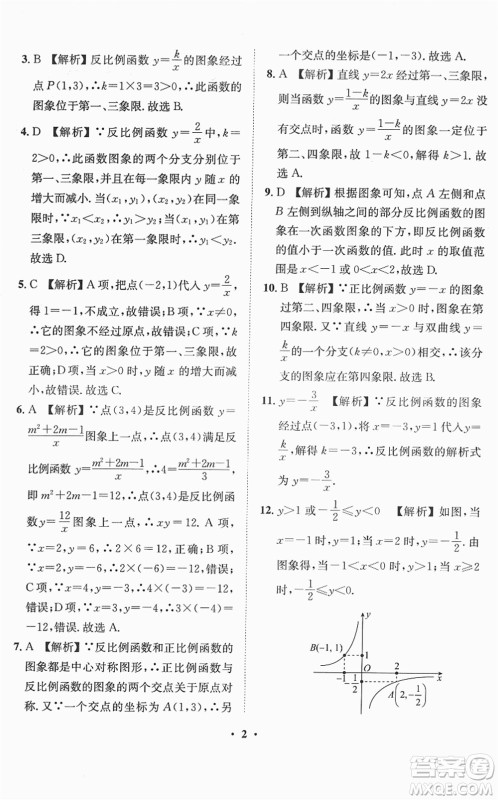 3. B 【解析】∵反比例函数 y=k/x 的图象经过
点 P(1,3),∴k=1×3=3>0,∴此函数的
图象位于第一、三象限.故选 B.
4. D 【解析】∵反比例函数 y=2/x 中,k=
2>0,∴此函数图象的两个分支分别位于
第一、三象限,并且在每一象限内 y 随 x 的
增大而减小.当(x₁,y₁)、(x₂,y₂)在同一象
限,∵x₁>x₂,∴y₁<y₂;当(x₁,y₁)、
(x₂,y₂)不在同一象限,∵x₁>x₂,∴y₁>
y₂.故选 D.
5. C 【解析】A 项,把点(-2,1)代入 y=2/x,
得 1=-1,不成立,故错误;B 项,∵k=2>
0,∴它的图象在第一、三象限,故错误;
C 项,∵x≠0,y≠0,∴它的图象不可能与坐
标轴相交,∴图象不经过原点,故
正确;D 项,当 x>0 时,y 随 x 的增大而减
小,故错误.故选 C.
6. A 【解析】∵点(3,4)是反比例函数 y=
m²+2m-1/x 图象上一点,∴点(3,4)满足反
比例函数 y=m²+2m-1/x,∴4=m²+2m-1/3,
即 m²+2m-1=12,∴点(3,4)在反比例函
数 y=12/x 的图象上.A 项,∵x=2,y=6,
∴2×6=12,正确;B 项,∵x=2,y=-6,
∴2×(-6)=-12,错误;C 项,∵x=4,
y=-3,∴4×(-3)=-12,错误;D 项,
∵x=3,y=-4,∴3×(-4)=
-12,错误.故选 A.
7. A 【解析】∵反比例函数和正比例函数的
图象都是中心对称图形,∴正比例函数图象
与反比例函数图象的两个交点关于原点对
称.又∵一个交点的坐标为 A(1,3),∴另
一个交点的坐标是(-1,-3).故选 A.
8. A 【解析】直线 y=2x 经过第一、三象
限,则当函数 y=1-k/x 和 y=2x 的图象
没有交点时,函数 y=1-k/x 的图象位于第
二、四象限,∴1-k<0,∴k>1.故选 A.
9. D 【解析】根据图象可知,点 A 左侧和点
B 左侧到纵轴之间的部分反比例函数的图
象在一次函数图象的下方,即反比例函数
的值小于一次函数的值.此时 x 的取值范
围是 x<-1 或 0<x<2.故选 D.
10. B 【解析】∵正比例函数 y=-x 的图象
过第二、四象限,∴与其有交点的双曲线
在第二、四象限.又∵直线 y=-x 与双曲线
y=-1/x,x>0,∴函数 y=-1/x(x>0)
的图象应在第四象限.故选 B.
11. y=-3/x 【解析】∵反比例函数的图象
经过点(-1,3),∴将 x=-1,y=3 代入 y=
k/x,得 k=-3,∴反比例函数的解析式
为 y=-3/x.
12. y>1 或 -1/2≤y<0 【解析】如图,当
x=-1 时,y=1;当 x=2 时,y=-1/2.由
图象得,当-1<x<0 时,y>1;当 x≥2
时,-1/2≤y<0.
y
B(-1,1)
1
-1 O 2 x
-1/2
A(2,-1/2)
• 2 •